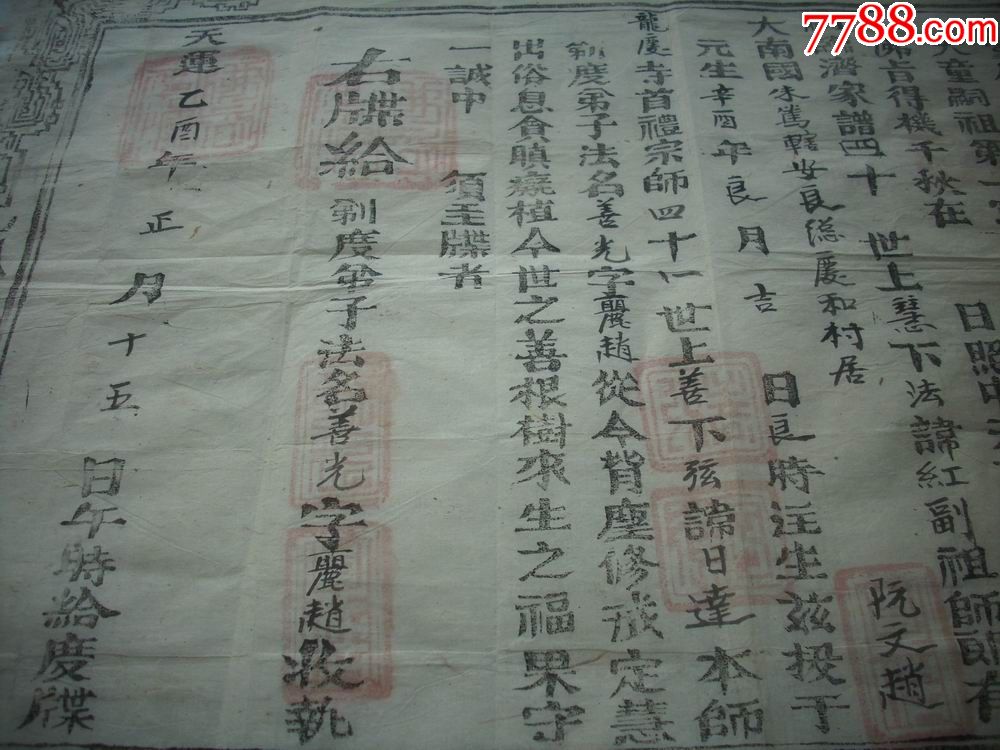 7788.com
童嗣祖第一
日照中
吉得機千秋在
濟家譜四十 世上慧下法諱紅副祖師
大南國 轄安良總慶和村居
阮文趙
元生辛酉年良 月吉 日良時注生茲投于
龍慶寺首禮宗師四十一 世上善下弦諱日達本師
剃度弟子法名善光字麗趙從今背塵修戒定慧
出俗息貪瞋痴植今世之善根樹來生之福果守
一誠中 須至牒者
右牒給 剃度弟子法名善光字麗趙收執
天運乙酉年正月十五日午時給度牒